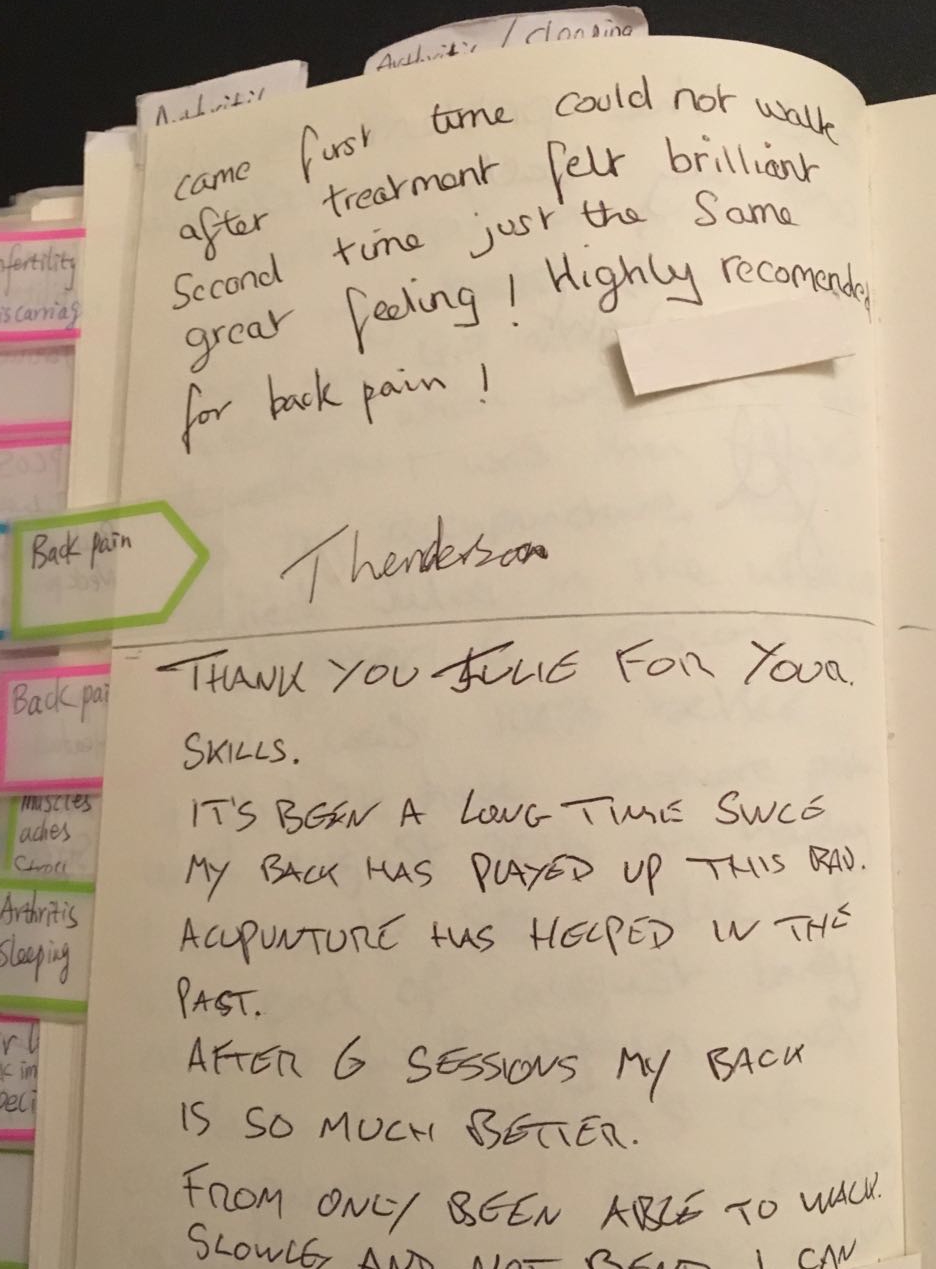 Arthritis / Sleeping
Arthritis
came first time could not walk
after treatment felt brilliant
Second time just the Same
great feeling! Highly recomended
for back pain!
Thenderson
THANK YOU JULIE FOR YOUR.
SKILLS.
IT'S BEEN A LONG TIME SINCE
MY BACK HAS PLAYED UP THIS BAD.
ACUPUNTURE HAS HELPED IN THE
PAST.
AFTER 6 SESSIONS MY BACK
IS SO MUCH BETTER.
FROM ONLY BEEN ABLE TO WALK.
SLOWLY AND NOT BEND I CAN
nfertility
iscarriag
PCOS
Back pain
Back pai
Muscles
aches
Arthritis
Sleeping